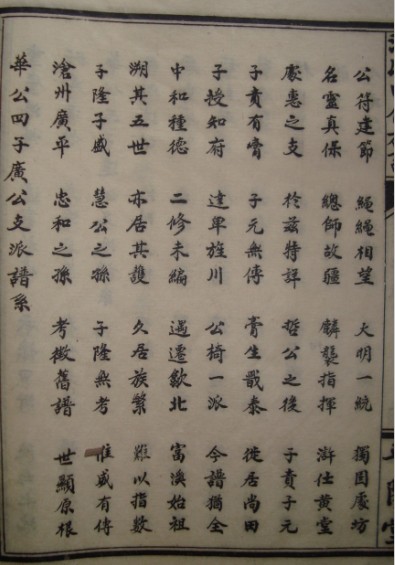 公符建節 繩繩相望 大明一統 獨固處坊
名靈真保 總師故疆 麟襲指揮 滸仕黃堂
處惠之支 於茲特詳 哲公之後 子賁子元
子賁有膏 子元無傳 膏生戩泰 徙居尚田
子授知府 達單旌川 公椅一派 今譜猶全
中和種德 二修未編 遇遷歙北 富溪始祖
朔其五世 亦居其 久居族繁 難以指數
子隆子盛 慧公之孫 子隆無考 惟盛有傳
滄州廣平 忠和之孫 考徵舊譜 世顯原根
華公四子廣公支派譜系